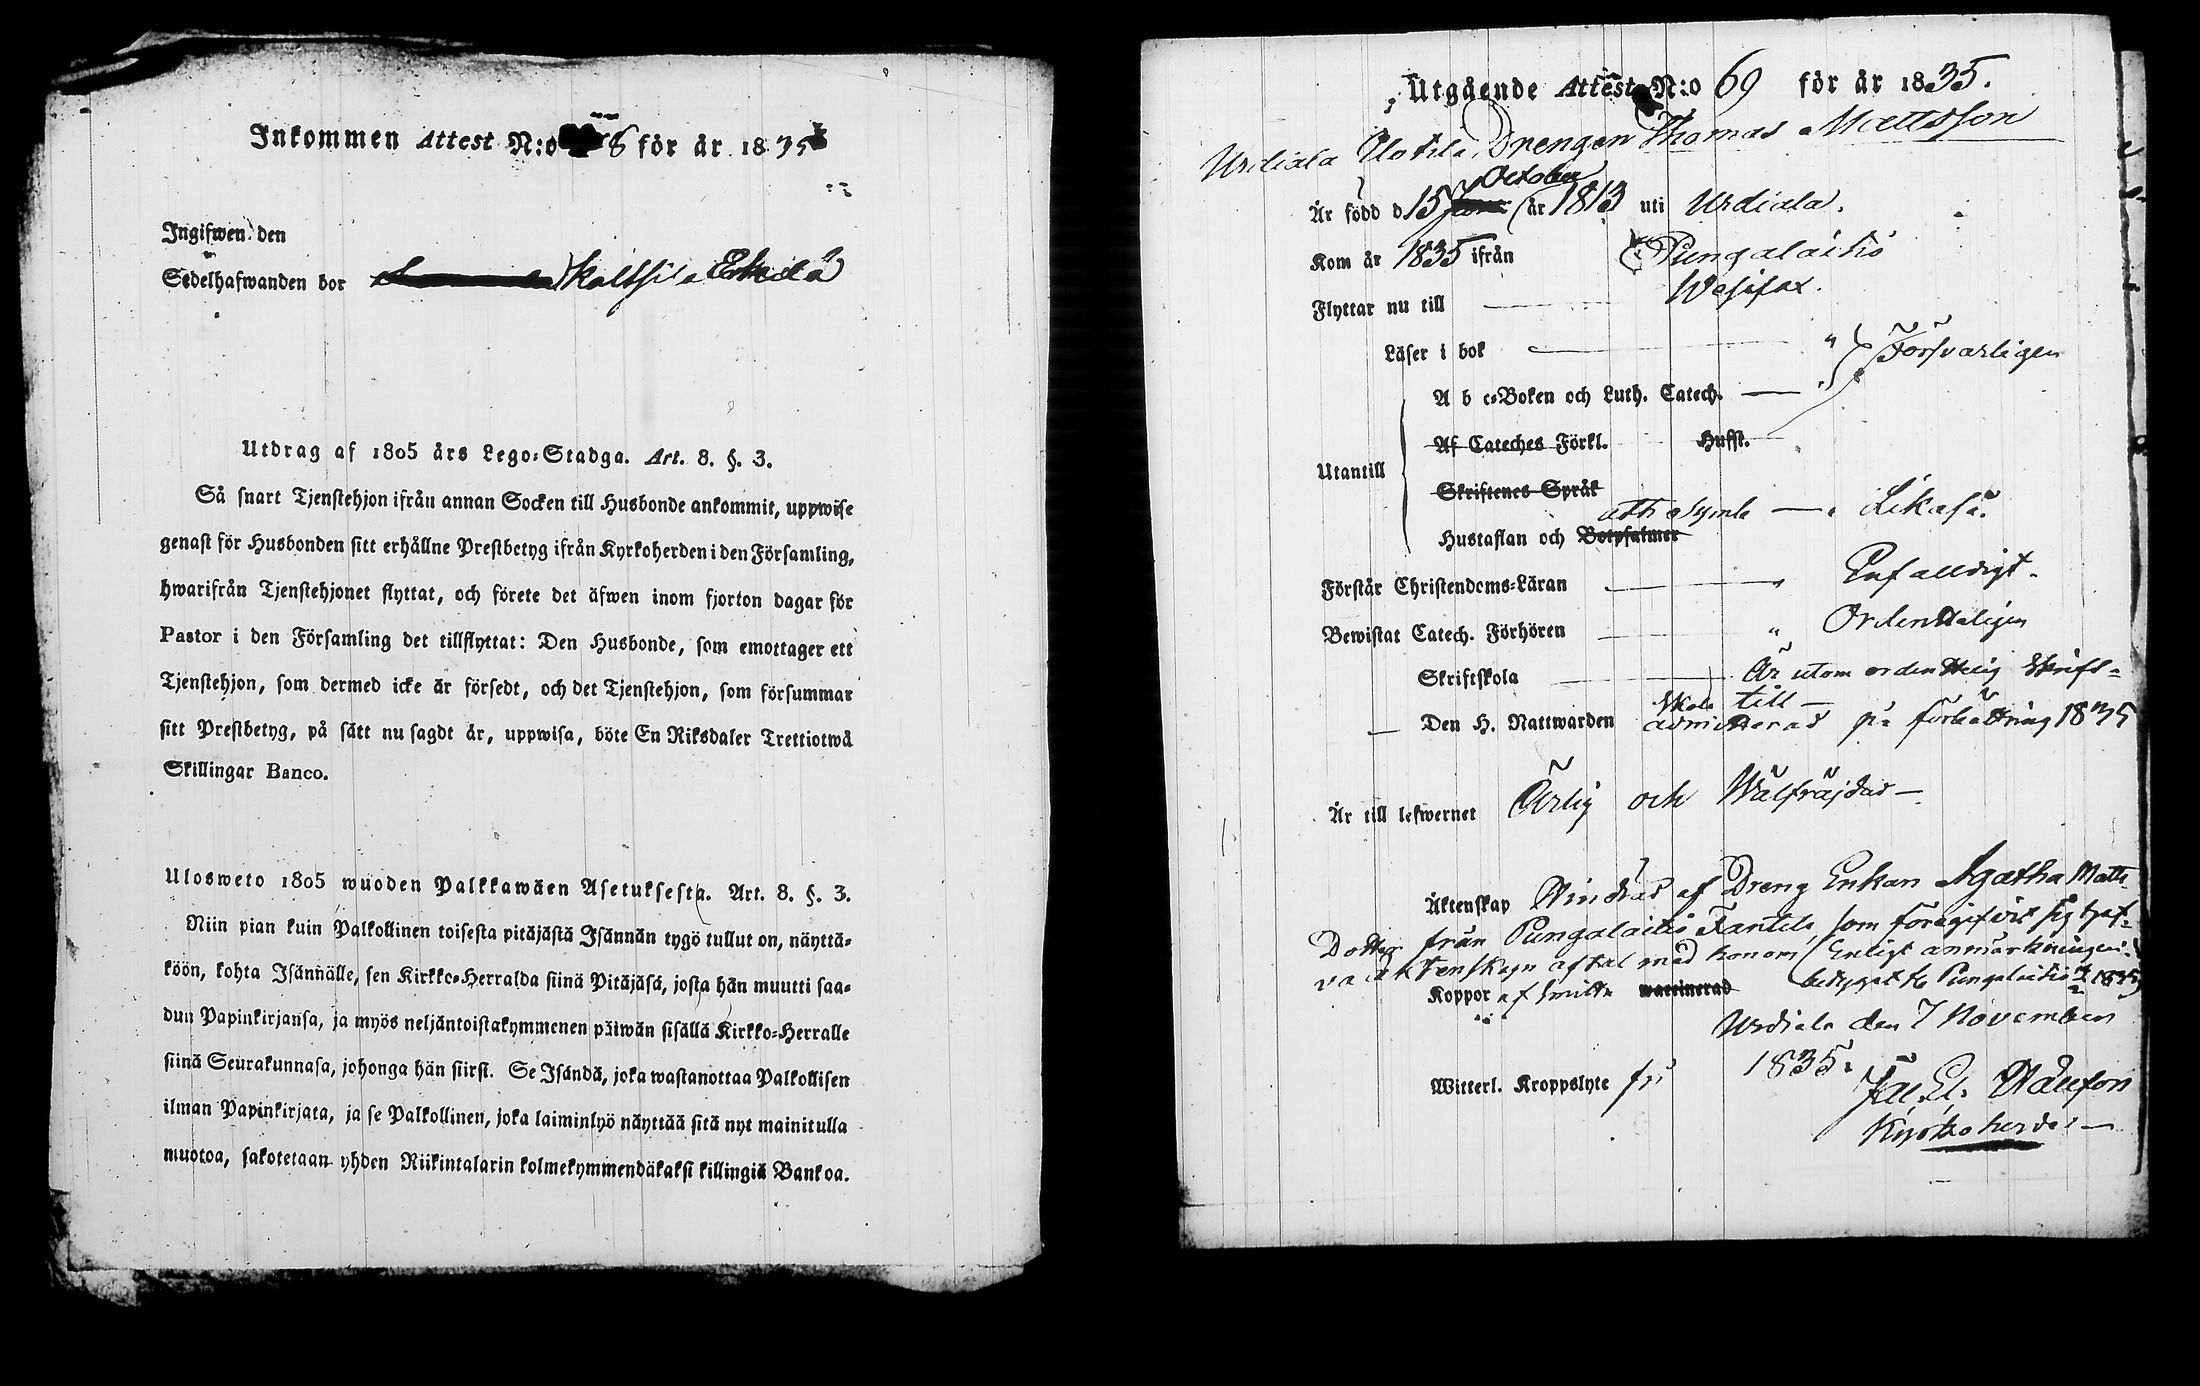 Inkommen Attest N:o 8 för år 1835
Ingifwen den
Sedelhafwanden bor Skaltsila Erkilä
Utdrag af 1805 års Lego-Stadga. Art. 8. §. 3.
Så snart Tjenstehjon ifrån annan Socken till Husbonde ankommit, uppwise
genast för Husbonden sitt erhållne Prestbetyg ifrån Kyrkoherden i den Församling,
hwarifrån Tjenstehjonet flyttat, och förete det äfwen inom fjorton dagar för
Pastor i den Församling det tillflyttat: Den Husbonde, som emottager ett
Tjenstehjon, som dermed icke är försedt, och det Tjenstehjon, som försummar
sitt Prestbetyg, på sätt nu sagdt är, uppwisa, böte En Riksdaler Trettiotwå
Skillingar Banco.
Ulosweto 1805 wuoden Palkkawäen Asetuksesta. Art. 8. §. 3.
Niin pian kuin Palkollinen toisesta pitäjästä Isännän tygö tullut on, näyttä-
köön, kohta Isännälle, sen Kirkko-Herralda siinä Pitäjäsä, josta hän muutti saa-
dun Papinkirjansa, ja myös neljäntoistakymmenen päiwän sisällä Kirkko-Herralle
siinä Seurakunnasa, johonga hän siirsi. Se Isändä, joka wastanottaa Palkollisen
ilman Papinkirjata, ja se Palkollinen, joka laiminlyö näyttää sitä nyt mainitulla
muotoa, sakotetaan yhden Riikintalarin kolmekymmendäkaksi killingiä Bankoa.
Utgående Attest N:o 69 för år 1835.
Urdiala Notila Drengen Thomas Mattsson
October
Är född d 15 år 1813 uti Urdiala.
Kom år 1835 ifrån Pungalaitio
Flyttar nu till Wesilax.
Läser i bok " Försvarligen
A b c-Boken och Luth. Catech.
Af Cateches Förkl. Husst.
Utantill
Skriftenes Språk
ath. Symb. Likaså.
Hustaflan och Botpsalmer
Förstår Christendoms-Läran Enfalldigt.
Bewistat Catech. Förhören " Ordentteligen
Skriftskola Är utom ordenttelig Skrift-
skola till
Den H. Nattwarden admitterad på förbättring 1835
Är till lefwernet Ärlig och Wälfräjdad
Äktenskap Hindrad af Dreng Enkan Agatha Matts
Dotter från Pungalaitio Fantila, som föregifvit sig haf-
va äktenskaps aftal med honom (Enligt anmärkningen i
betyget fr. Pungalaitio 1835)
Koppor af smitta waccinerad
Urdiala den 7 November
1835.
Witterl. Kroppslyte fri
Kyrkoherde